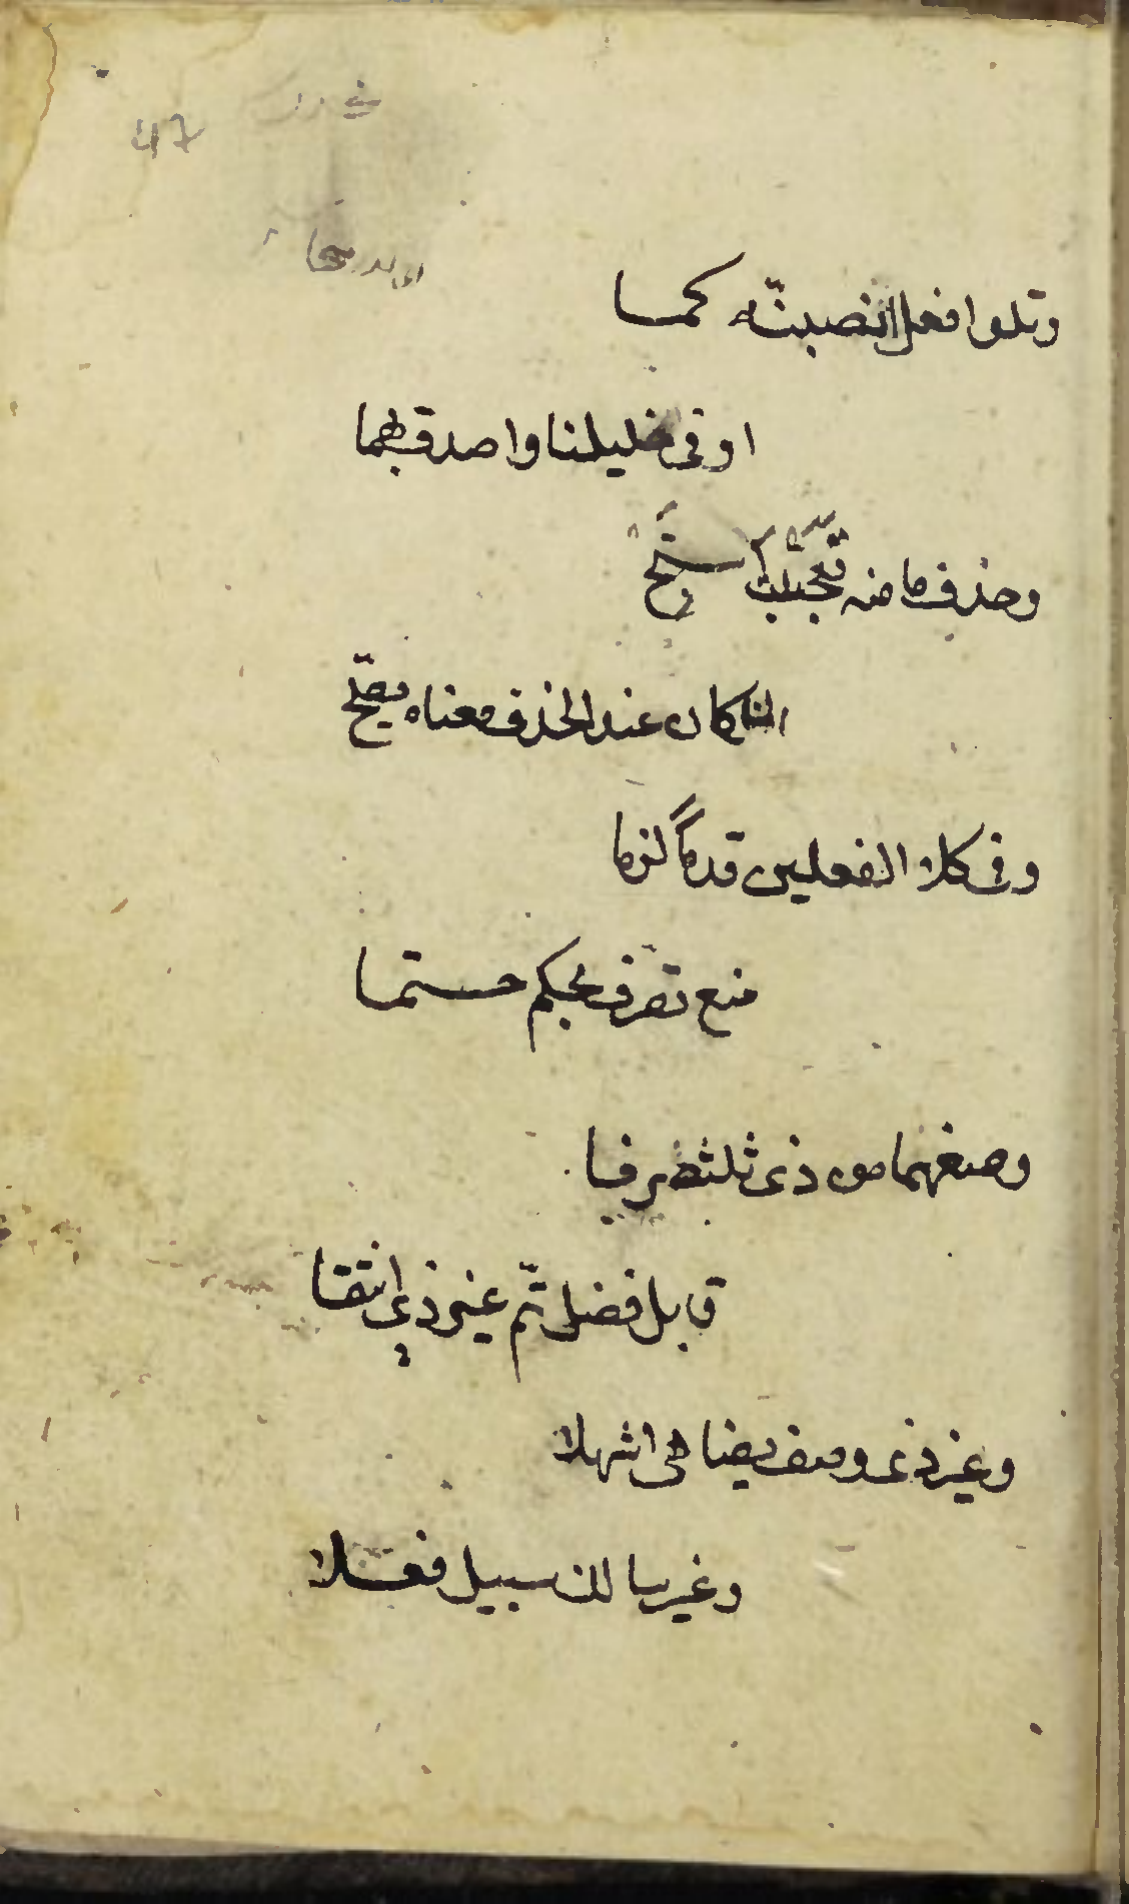 47
وتلو افعل انصبنّه كما
اوفى خليلنا واصدق بهما
وحذف ما منه تعجّبت استبح
ان كان عند الحذف معناه يضح
وفى كلا الفعلين قدمًا لزما
منع تصرف بحكم حتما
وصغهما من ذى ثلث صرفا
قابل فضل تمّ غير ذى انتفا
وغير ذى وصف يضاهى اشهلا
وغير سالك سبيل فعلا